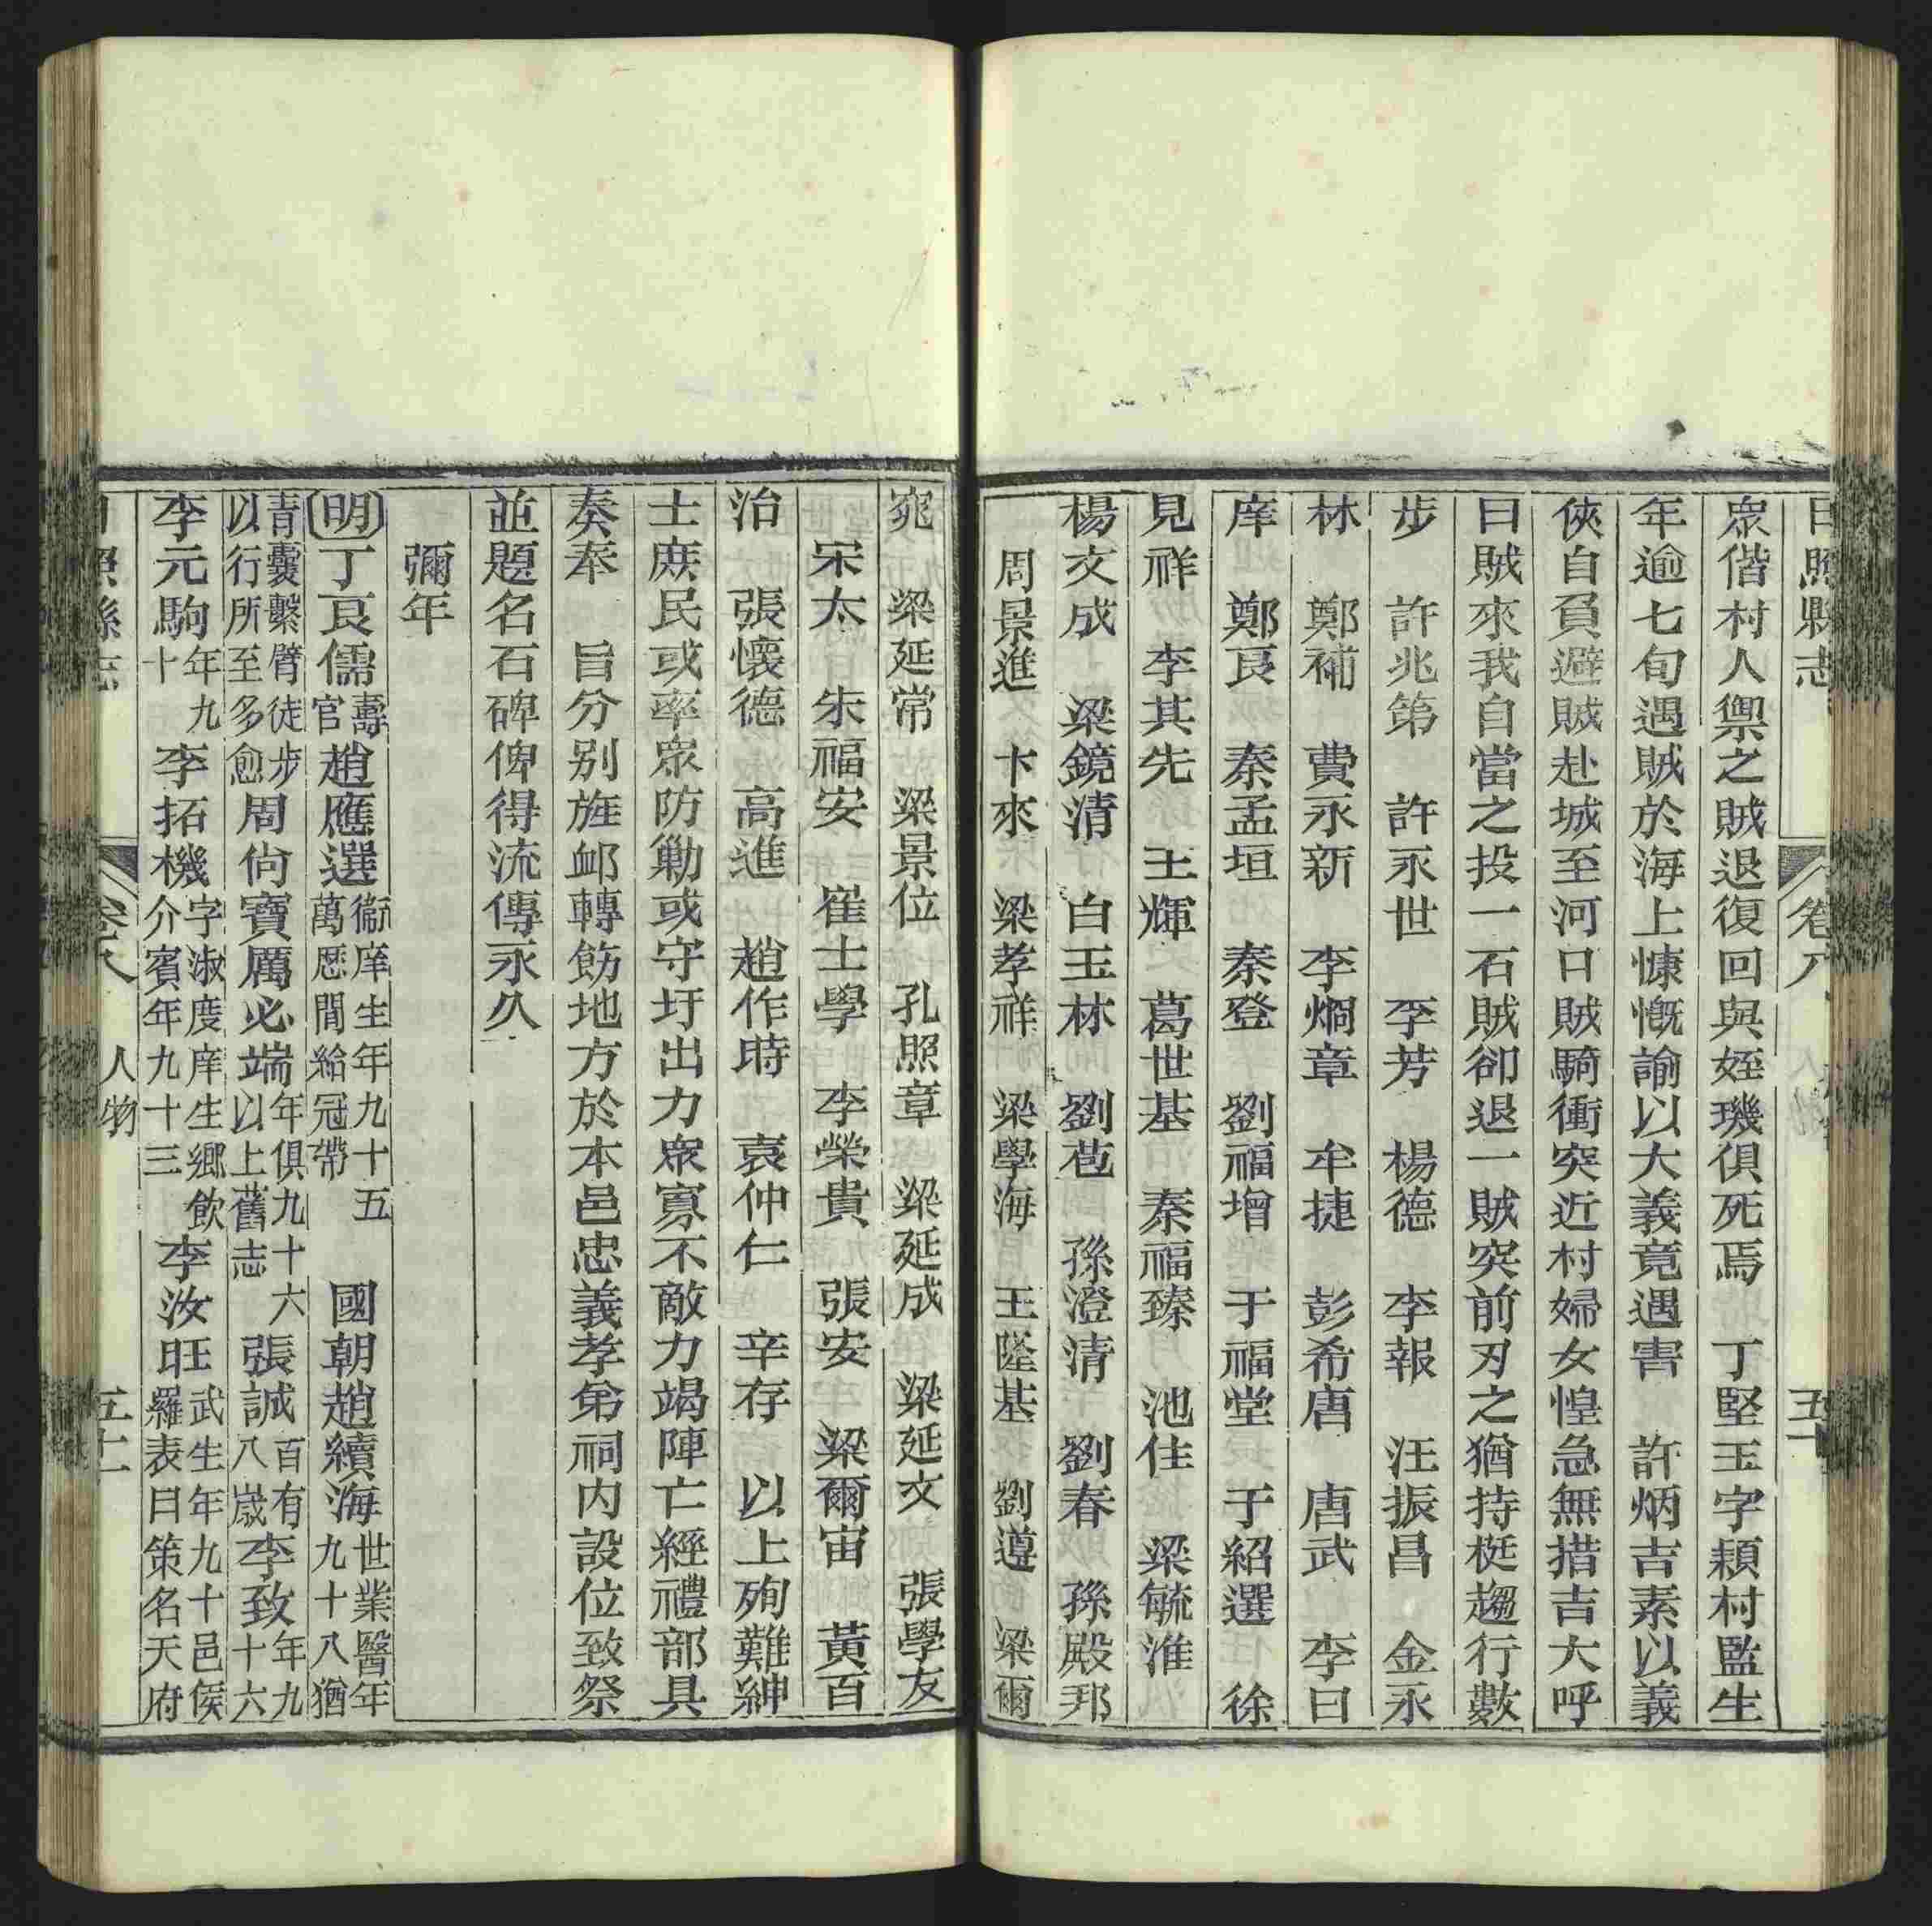 日照縣志　卷八　五十
眾偕村人禦之賊退復回與姪璣俱死焉　丁堅玉字穎村監生
年逾七旬遇賊於海上慷慨諭以大義竟遇害　許炳吉素以義
俠自負避賊赴城至河口賊騎衝突近村婦女惶急無措吉大呼
曰賊來我自當之投一石賊卻退一賊突前刃之猶持梃趨行數
步　許兆第　許永世　李芳　楊德　李報　汪振昌　金永
林　鄭補　費永新　李烱章　牟捷　彭希唐　唐武　李曰
庠　鄭良　秦孟垣　秦登　劉福增　于福堂　于紹選　徐
見祥　李其先　王輝　葛世基　秦福臻　池住　梁毓淮
楊文成　梁鏡清　白玉林　劉苞　孫澄清　劉春　孫殿邦
周景進　卞來　梁孝祥　梁學海　王隆基　劉遵　梁爾
窕　梁延常　梁景位　孔照章　梁延成　梁延文　張學友
宋太　朱福安　崔士學　李榮貴　張安　梁爾宙　黃百
治　張懷德　高進　趙作時　袁仲仁　辛存　以上殉難紳
士庶民或率眾防勦或守圩出力眾寡不敵力竭陣亡經禮部具
奏奉　旨分別旌卹轉飭地方於本邑忠義孝弟祠內設位致祭
並題名石碑俾得流傳永久
彌年
明 丁良儒壽官　趙應選衛庠生年九十五萬厯間給冠帶　國朝趙續海世業醫年九十八猶
青囊繫臂徒步以行所至多愈　周尙寶厲必端年俱九十六以上舊志　張誠百有八歲　李致年九十六
李元駒年九十　李拓機字淑度庠生鄉飲介賓年九十三　李汝旺武生年九十邑侯羅表曰策名天府
日照縣志　卷八　人物　五十一